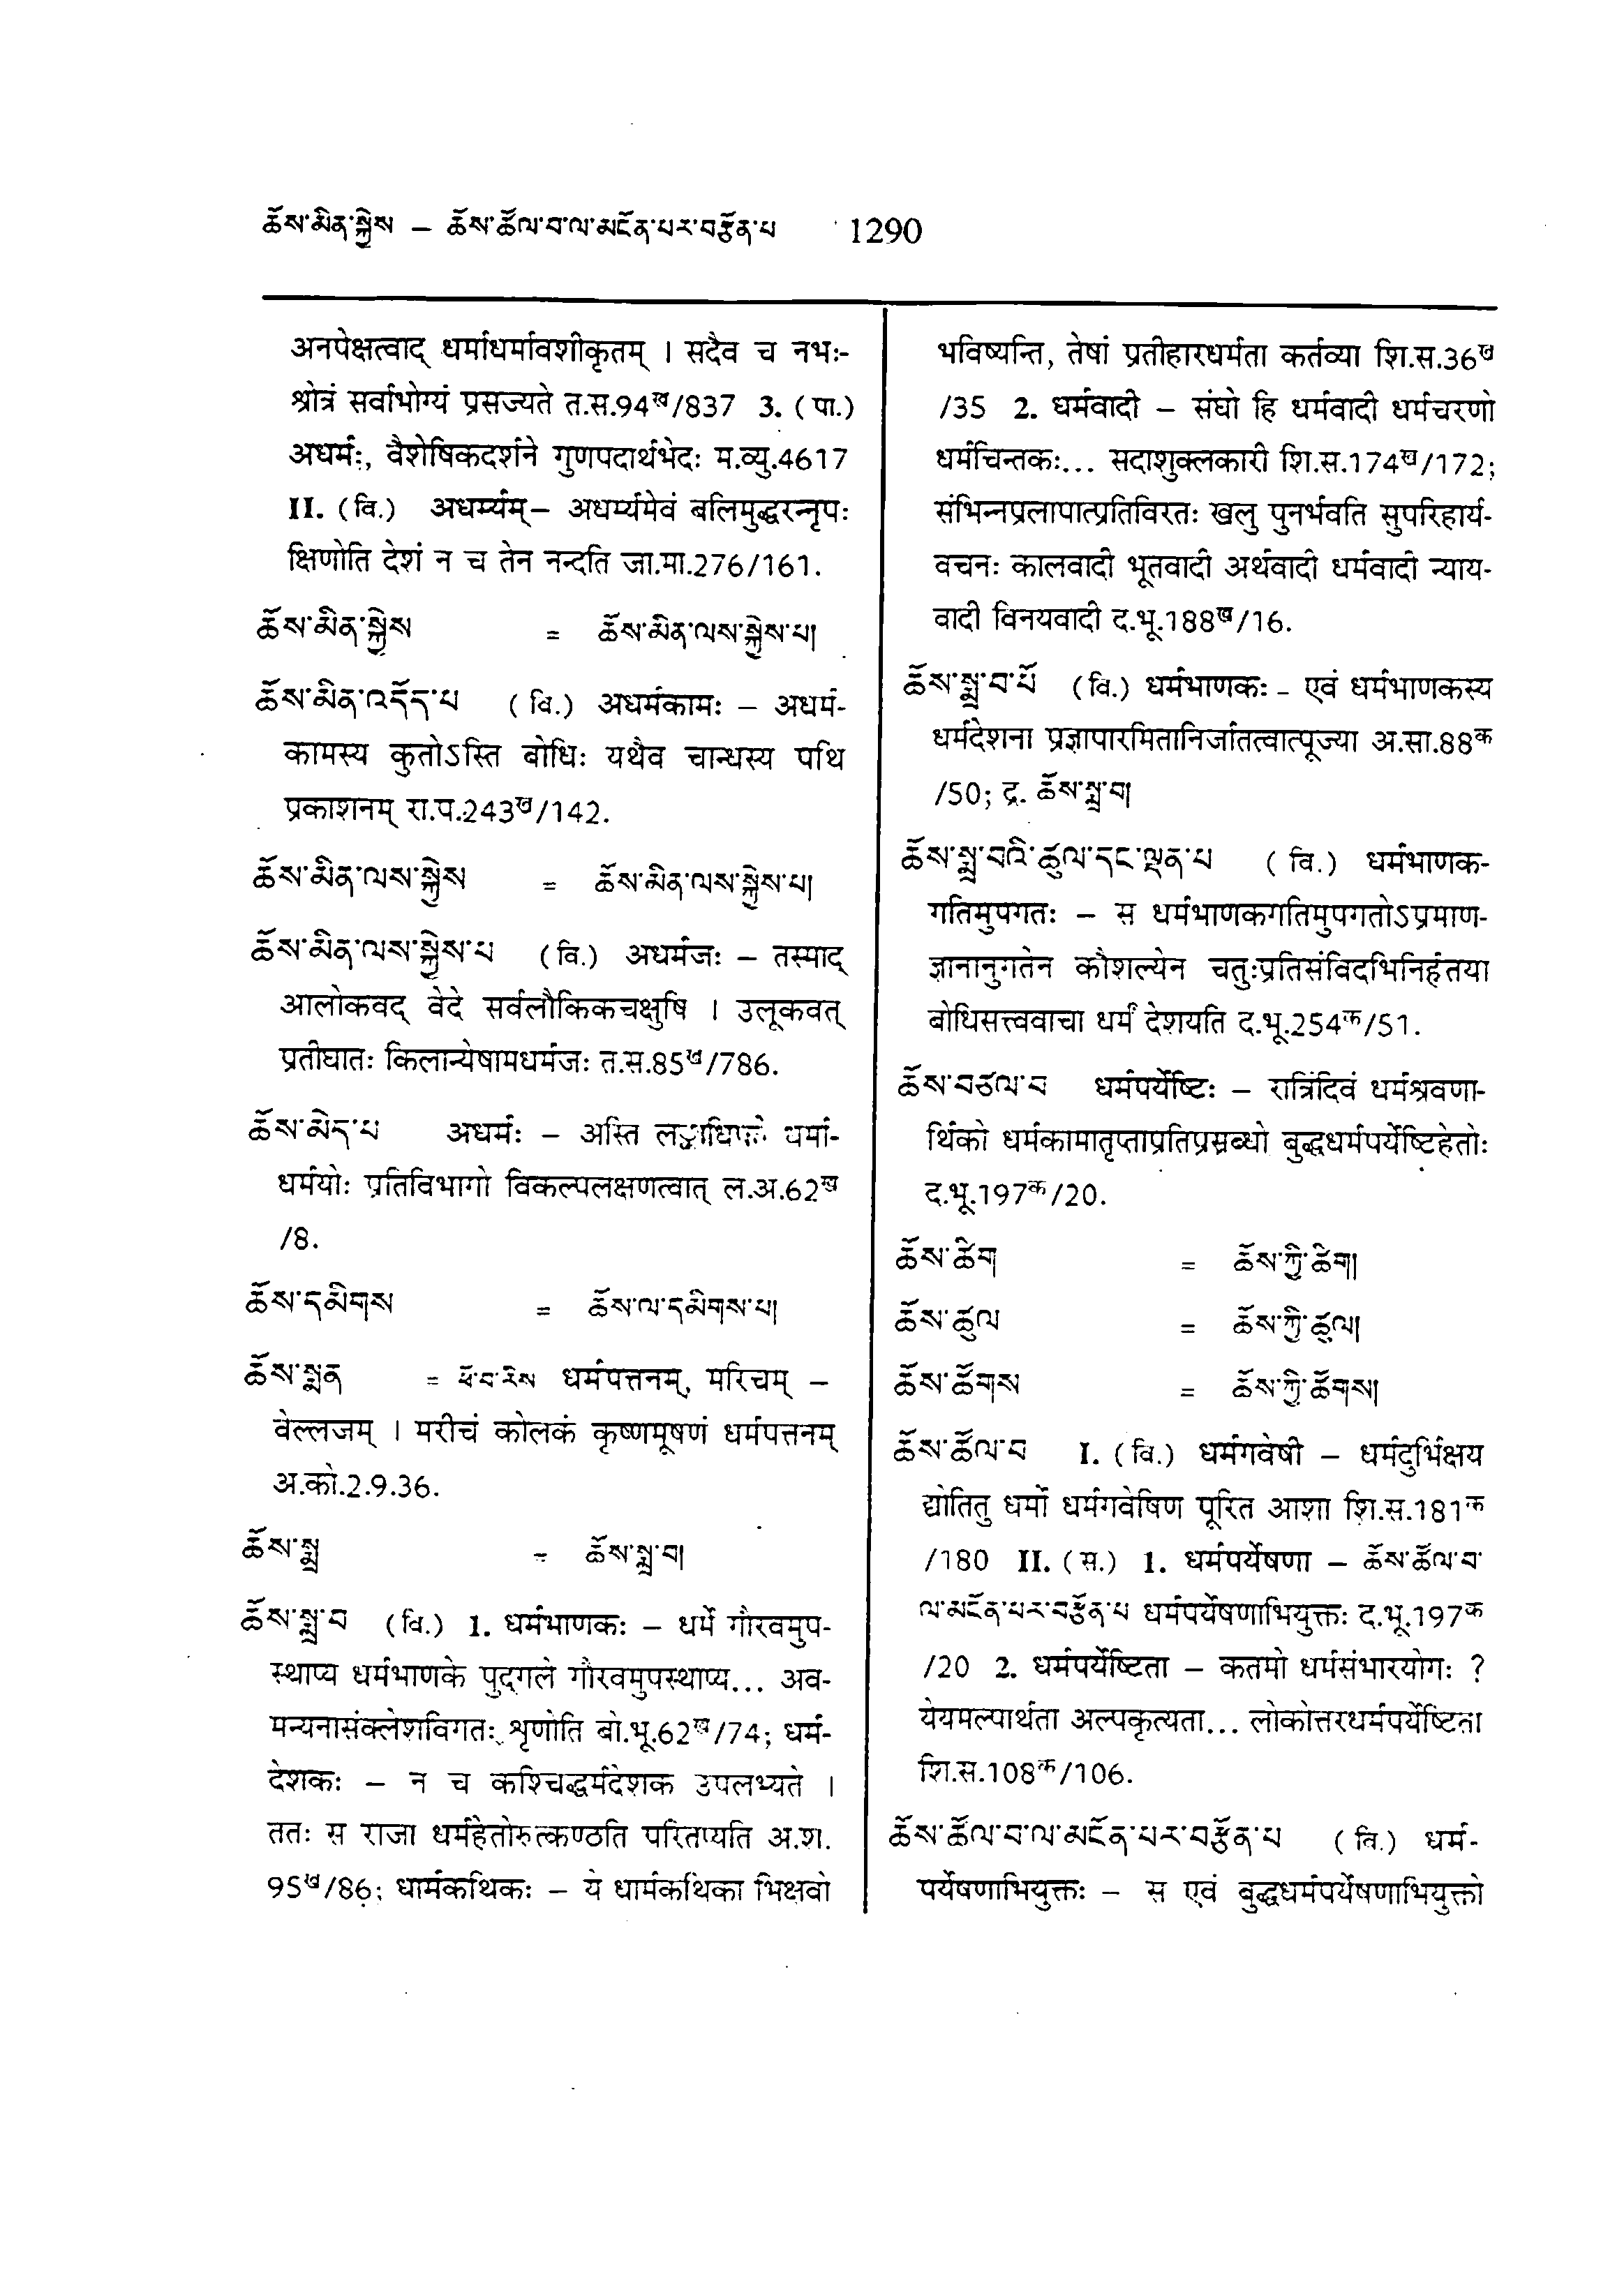 ཆོས་མིན་སྐྱེས – ཆོས་ཚོལ་བ་ལ་མངོན་པར་བརྩོན་པ 1290
अनपेक्षत्वाद् धर्माधर्मावशीकृतम् । सदैव च नभः-
श्रोत्रं सर्वाभोग्यं प्रसज्यते त.स.94ख/837 3. (पा.)
अधर्मः, वैशेषिकदर्शने गुणपदार्थभेदः म.व्यु.4617
II. (वि.) अधर्म्यम्– अधर्म्यमेवं बलिमुद्धरन्नृपः
क्षिणोति देशं न च तेन नन्दति जा.मा.276/161.
ཆོས་མིན་སྐྱེས = ཆོས་མིན་ལས་སྐྱེས་པ།
ཆོས་མིན་འདོད་པ (वि.) अधर्मकामः – अधर्म-
कामस्य कुतोऽस्ति बोधिः यथैव चान्धस्य पथि
प्रकाशनम् रा.प.243ख/142.
ཆོས་མིན་ལས་སྐྱེས = ཆོས་མིན་ལས་སྐྱེས་པ།
ཆོས་མིན་ལས་སྐྱེས་པ (वि.) अधर्मजः – तस्माद्
आलोकवद् वेदे सर्वलौकिकचक्षुषि । उलूकवत्
प्रतीघातः किलान्येषामधर्मजः त.स.85ख/786.
ཆོས་མེད་པ अधर्मः – अस्ति लङ्काधिपते धर्मा-
धर्मयोः प्रतिविभागो विकल्पलक्षणत्वात् ल.अ.62ख
/8.
ཆོས་དམིགས = ཆོས་ལ་དམིགས་པ།
ཆོས་སྨན = ཕོ་བ་རིས धर्मपत्तनम्, मरिचम् –
वेल्लजम् । मरीचं कोलकं कृष्णमूषणं धर्मपत्तनम्
अ.को.2.9.36.
ཆོས་སྨྲ = ཆོས་སྨྲ་བ།
ཆོས་སྨྲ་བ (वि.) 1. धर्मभाणकः – धर्मे गौरवमुप-
स्थाप्य धर्मभाणके पुद्गले गौरवमुपस्थाप्य... अव-
मन्यनासंक्लेशविगतः शृणोति बो.भू.62ख/74; धर्म-
देशकः – न च कश्चिद्धर्मदेशक उपलभ्यते ।
ततः स राजा धर्महेतोरुत्कण्ठति परितप्यति अ.श.
95ख/86; धार्मकथिकः – ये धार्मकथिका भिक्षवो
भविष्यन्ति, तेषां प्रतीहारधर्मता कर्तव्या शि.स.36ख
/35 2. धर्मवादी – संघो हि धर्मवादी धर्मचरणो
धर्मचिन्तकः... सदाशुक्लकारी शि.स.174ख/172;
संभिन्नप्रलापात्प्रतिविरतः खलु पुनर्भवति सुपरिहार्य-
वचनः कालवादी भूतवादी अर्थवादी धर्मवादी न्याय-
वादी विनयवादी द.भू.188ख/16.
ཆོས་སྨྲ་བ་པོ (वि.) धर्मभाणकः – एवं धर्मभाणकस्य
धर्मदेशना प्रज्ञापारमितानिर्जातत्वात्पूज्या अ.सा.88क
/50; द्र. ཆོས་སྨྲ་བ།
ཆོས་སྨྲ་བའི་ཚུལ་དང་ལྡན་པ (वि.) धर्मभाणक-
गतिमुपगतः – स धर्मभाणकगतिमुपगतोऽप्रमाण-
ज्ञानानुगतेन कौशल्येन चतुःप्रतिसंविदभिनिर्हतया
बोधिसत्त्ववाचा धर्मं देशयति द.भू.254क/51.
ཆོས་བཙལ་བ धर्मपर्येष्टिः – रात्रिंदिवं धर्मश्रवणा-
र्थिको धर्मकामातृप्ताप्रतिप्रस्रब्धो बुद्धधर्मपर्येष्टिहेतोः
द.भू.197क/20.
ཆོས་ཚིག = ཆོས་ཀྱི་ཚིག།
ཆོས་ཚུལ = ཆོས་ཀྱི་ཚུལ།
ཆོས་ཚོགས = ཆོས་ཀྱི་ཚོགས།
ཆོས་ཚོལ་བ I. (वि.) धर्मगवेषी – धर्मदुर्भिक्षय
द्योतितु धर्मो धर्मगवेषिण पूरित आशा शि.स.181क
/180 II. (स.) 1. धर्मपर्येषणा – ཆོས་ཚོལ་བ་
ལ་མངོན་པར་བརྩོན་པ धर्मपर्येषणाभियुक्तः द.भू.197क
/20 2. धर्मपर्येष्टिता – कतमो धर्मसंभारयोगः ?
येयमल्पार्थता अल्पकृत्यता... लोकोत्तरधर्मपर्येष्टिता
शि.स.108क/106.
ཆོས་ཚོལ་བ་ལ་མངོན་པར་བརྩོན་པ (वि.) धर्म-
पर्येषणाभियुक्तः – स एवं बुद्धधर्मपर्येषणाभियुक्तो